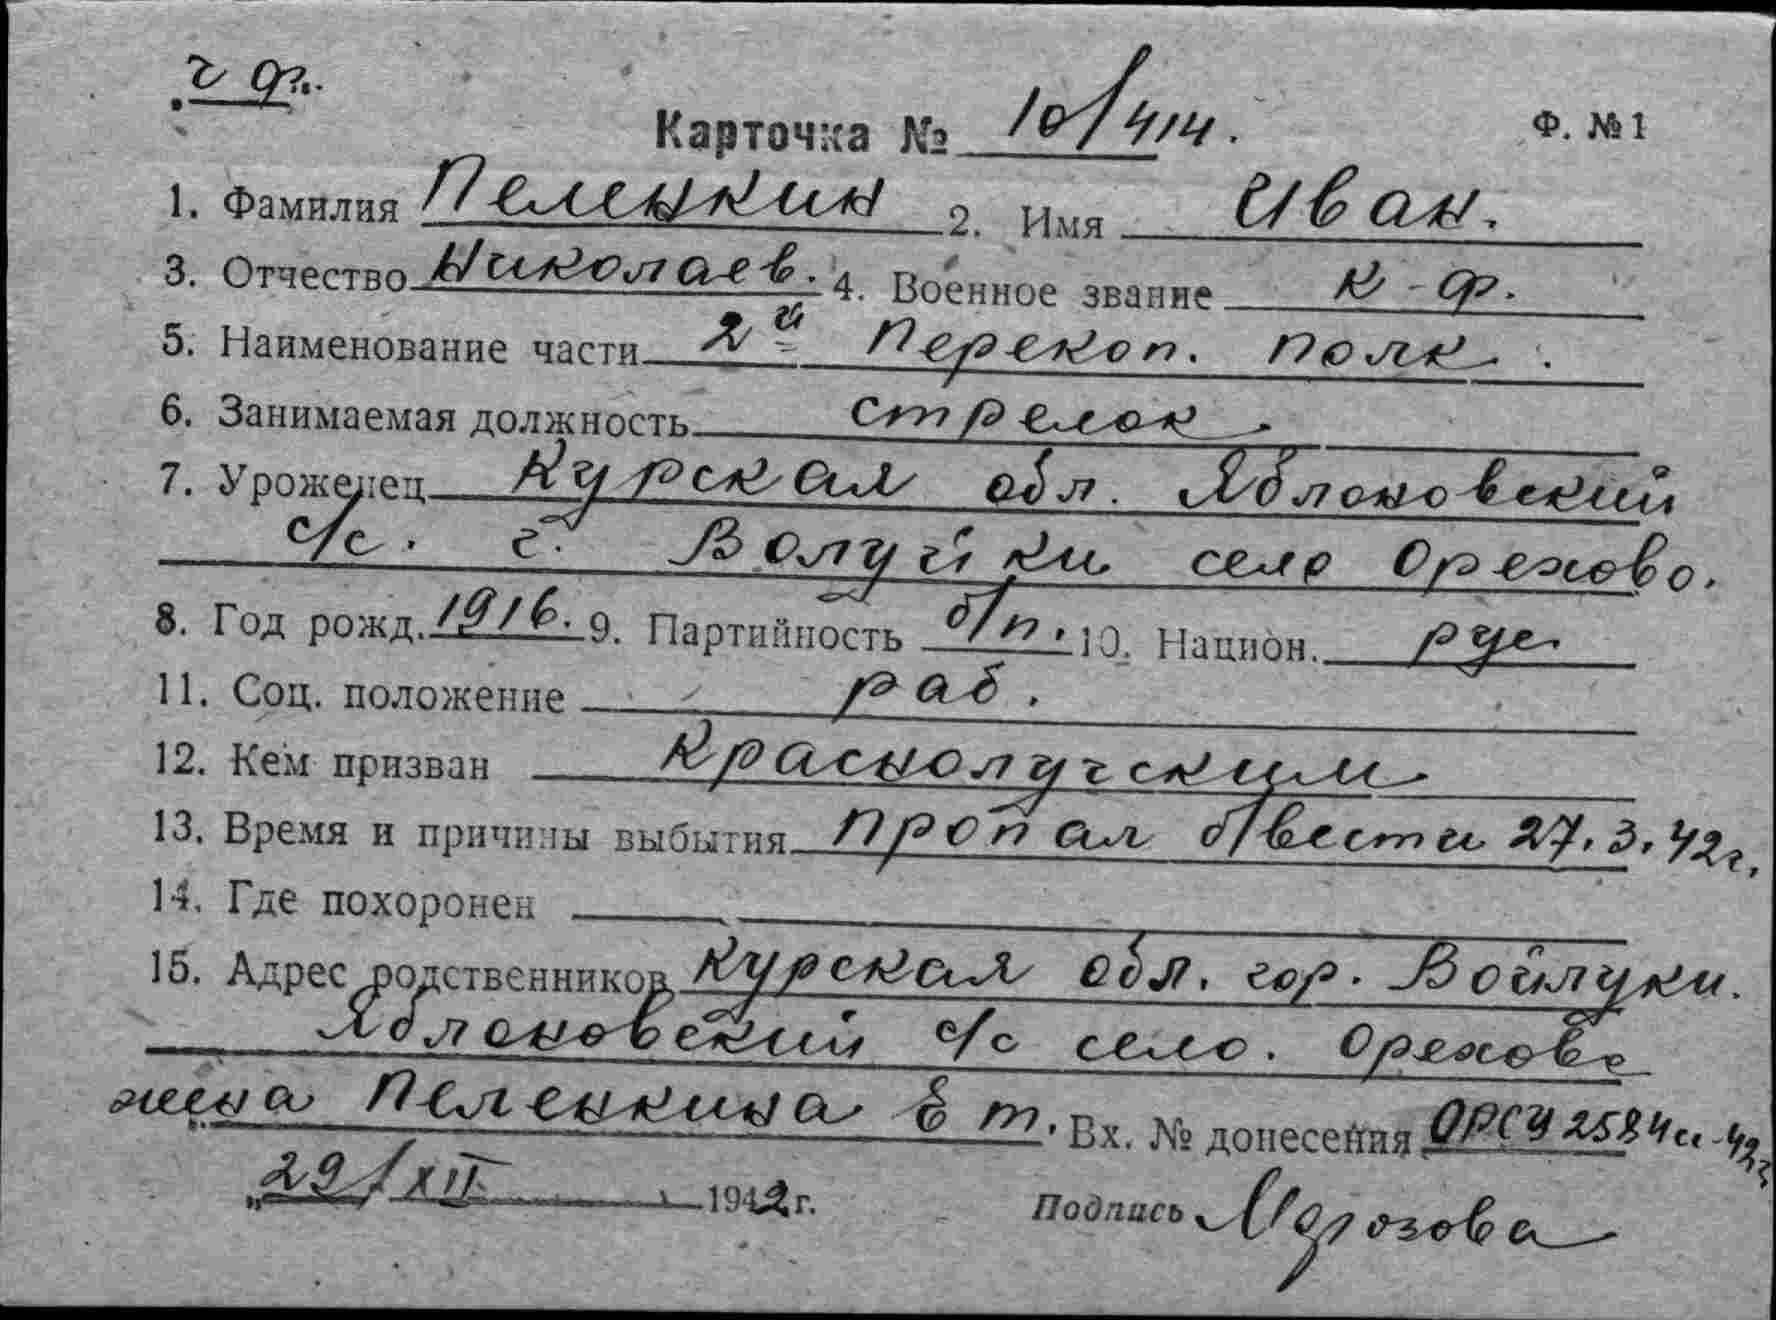 ч ф.
Карточка № 10/414. Ф. №1
1. Фамилия Пеленкин 2. Имя Иван.
3. Отчество Николаев. 4. Военное звание к-ф.
5. Наименование части 2й Перекоп. полк.
6. Занимаемая должность стрелок.
7. Уроженец Курская обл. Яблоновский
с/с. г. Волуйки село Орехово.
8. Год рожд. 1916. 9. Партийность б/п. 10. Национ. рус
11. Соц. положение раб.
12. Кем призван Краснолучским
13. Время и причины выбытия пропал б/вести 27.3.42г.
14. Где похоронен
15. Адрес родственников Курская обл. гор. Войлуки.
Яблоновский с/с село. Орехово
жена Пеленкина Е т. Вх. № донесения ОРСУ 2584с-42г
„29/XII 1942г. Подпись Морозова